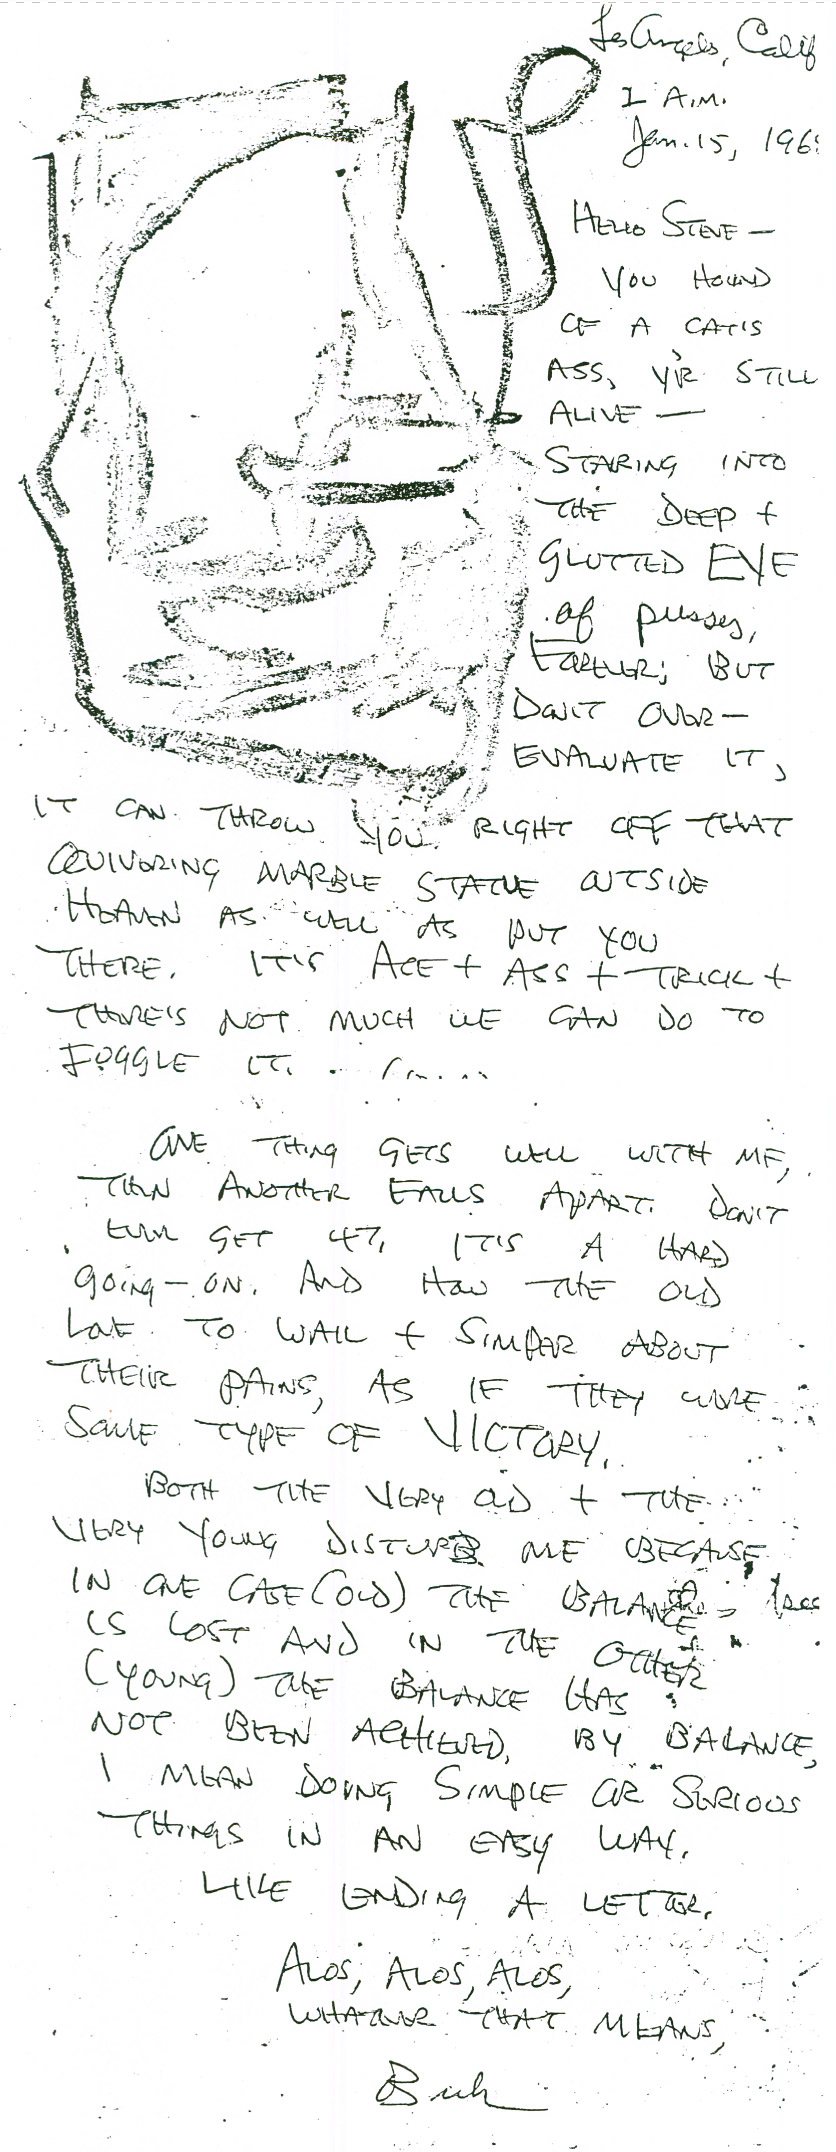 Los Angeles, Calif
1 A.M.
Jan. 15, 196
HELLO STEVE —
YOU HOUND
OF A CAT'S
ASS, Y'R STILL
ALIVE —
STARING INTO
THE DEEP +
GLUTTED EYE
of pussy,
FOREVER; BUT
DON'T OVER—
EVALUATE IT,
IT CAN THROW YOU RIGHT OFF THAT
QUIVERING MARBLE STATUE OUTSIDE
HEAVEN AS WELL AS PUT YOU
THERE. IT'S ACE + ASS + TRICK +
THERE'S NOT MUCH WE CAN DO TO
FOGGLE IT. . . . . . .
ONE THING GETS WELL WITH ME,
THEN ANOTHER FALLS APART. DON'T
EVER GET 47, IT'S A HARD
GOING—ON. AND HOW THE OLD
LOVE TO WAIL + SIMPER ABOUT
THEIR PAINS, AS IF THEY WERE
SOME TYPE OF VICTORY.
BOTH THE VERY OLD + THE
VERY YOUNG DISTURB ME BECAUSE
IN ONE CASE (OLD) THE BALANCE
IS LOST AND IN THE OTHER
(YOUNG) THE BALANCE HAS
NOT BEEN ACHIEVED, BY BALANCE,
I MEAN DOING SIMPLE OR SERIOUS
THINGS IN AN EASY WAY.
LIKE ENDING A LETTER.
ALOS, ALOS, ALOS,
WHATEVER THAT MEANS,
Buk